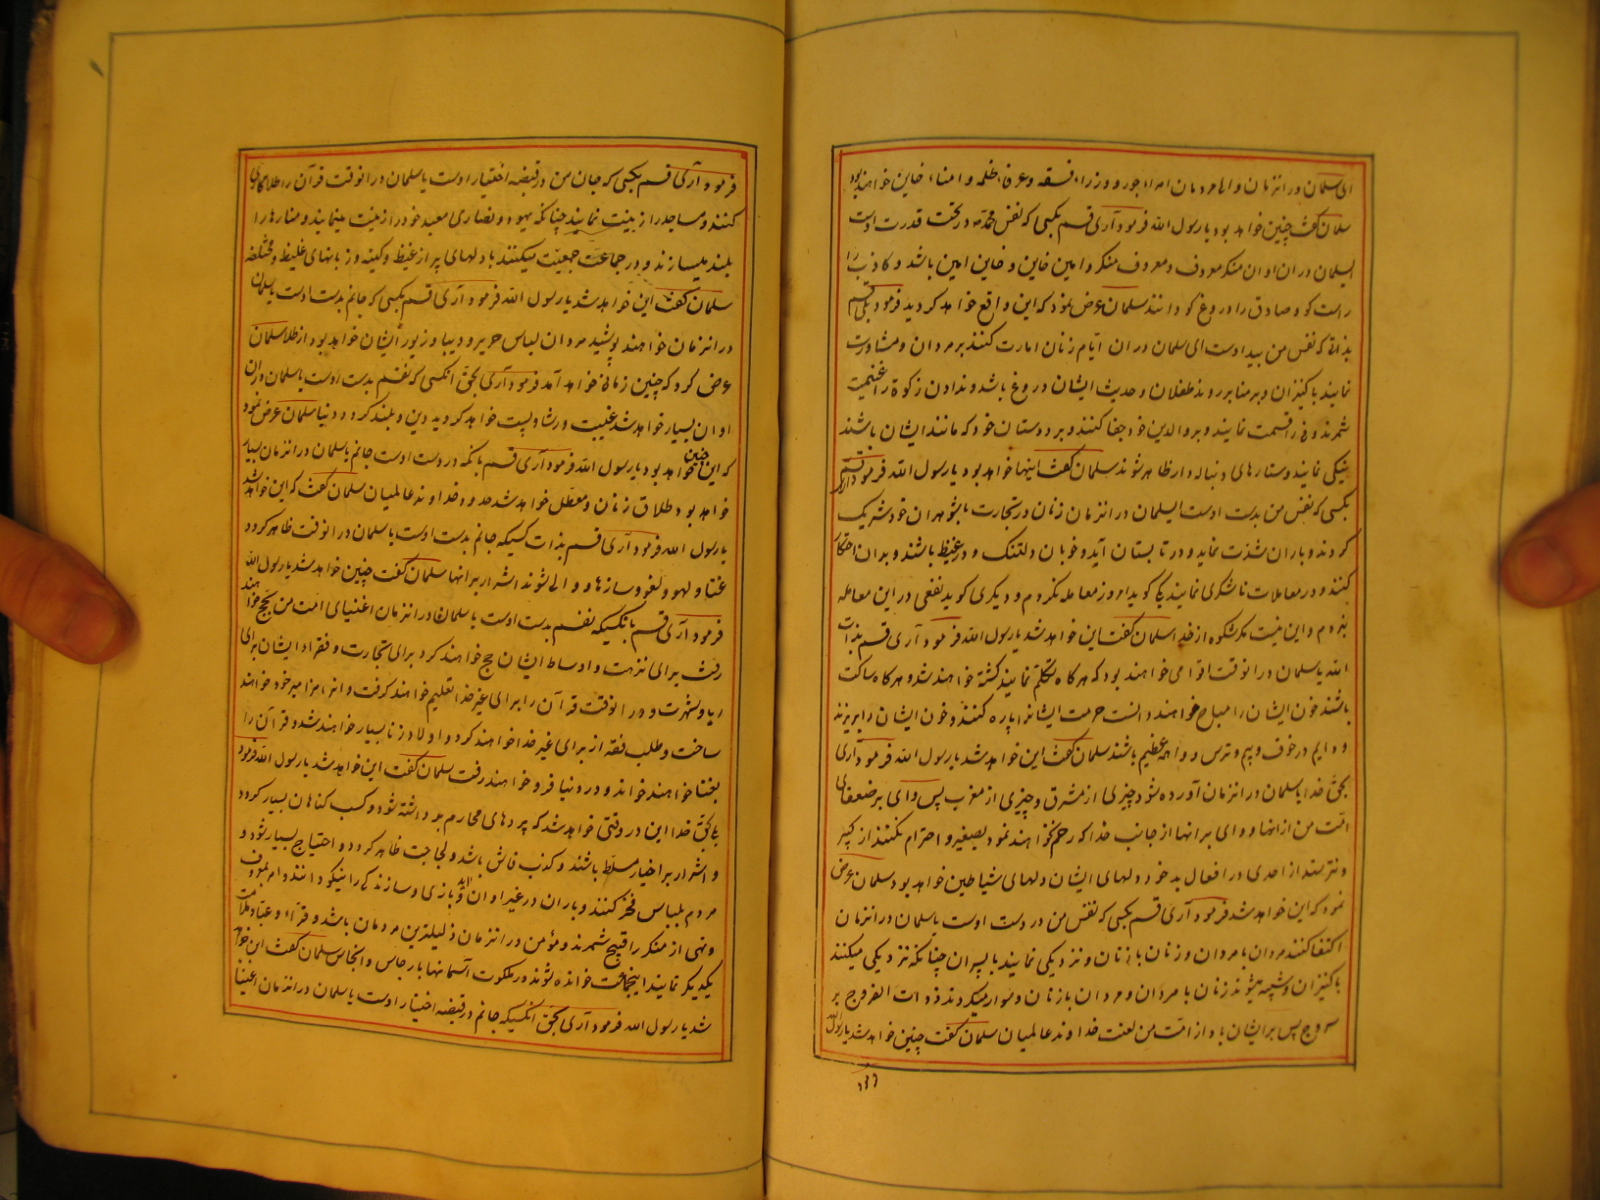 ای سلمان در انزمان والیا مردمان امراء جور و وزراء فسقه و عرفاء ظلمه و امناء خاین خواهند بود
سلمان گفت چنین خواهد بود یا رسول الله فرمود آری قسم بکسی که نفس محمد در تحت قدرت اوست
ایسلمان در ان اوان منکر معروف و معروف منکر و امین خاین و خاین امین باشد و کاذب را
راست کو و صادق را دروغ کو دانند سلمان عرض نمود که این واقع خواهد کردید فرمود بلی قسم
بذاتی که نفس من بید اوست ای سلمان در ان ایام زنان امارت کنند بر مردان و مشاورت
نمایند با کنیزان و بر منابر روند طفلان و حدیث ایشان دروغ باشد و ندادن زکوة را غنیمت
شمرند و فی را قسمت نمایند و بر والدین خود جفا کنند و بر دوستان خود که مانند ایشان باشند
نیکی نمایند و ستارهای دنباله دار ظاهر شوند سلمان گفت اینها خواهد بود یا رسول الله فرمود آری قسم
بکسی که نفس من بدست اوست ایسلمان در انزمان زنان در تجارت با شوهران خود شریک
کردند و باران شدت نماید و در تابستان آید و خوبان دلتنک و در غیظ باشند و بدان احتکار
کنند و در معاملات ناشکری نمایند یکی کوید امروز معامله نکردم و دیکری کوید نفعی در این معامله
نبردم و این نیست مکر شکوه از خدا سلمان گفت این خواهد شد یا رسول الله فرمود آری قسم بذات
الله یا سلمان در انوقت اقوامی خواهند بود که هرکاه تکلم نمایند کشته خواهند شد و هرکاه ساکت
باشند خون ایشان را مباح خواهند دانست حرمت ایشانرا پاره کنند و خون ایشان را بریزند
و دایم در خوف و بیم و ترس و واهمه عظیم باشند سلمان گفت این خواهد شد یا رسول الله فرمود آری
بحق خدا یا سلمان در انزمان آورده شود چیزی از مشرق و چیزی از مغرب پس وای بر ضعفای
امت من از انها و وای بر انها از جانب خدا که رحم نخواهند نمود بصغیر و احترام نکنند از کبیر
و نترسند از احدی در افعال بد خود دلهای ایشان دلهای شیاطین خواهد بود سلمان عرض
نمود که این خواهد شد فرمود آری قسم بکسی که نفس من در دست اوست یا سلمان در انزمان
اکتفا کنند مردان با مردان و زنان با زنان و نزدیکی نمایند با پسران چنانکه نزدیکی میکنند
با کنیزان و شبیه میشوند زنان با مردان و مردان با زنان و سوار میکردند ذوات الفروج بر
سروج پس بر ایشان باد از امت من لعنت خداوند عالمیان سلمان گفت چنین خواهد شد یا رسول الله
فرمود آری قسم بکسی که جان من در قبضه اختیار اوست یا سلمان در انوقت قرآن را طلاکاری
کنند و مساجد را زینت نمایند چنانکه یهود و نصاری معبد خود را زینت مینمایند و منارها را
بلند میسازند و در جماعت جمعیت میکنند با دلهای پر از غیظ و کینه و زبانهای غلیظ و مختلفه
سلمان گفت این خواهد شد یا رسول الله فرمود آری قسم بکسی که جانم بدست اوست یا سلمان
در انزمان خواهند پوشید مردان لباس حریر و دیبا و زیور ایشان خواهد بود از طلا سلمان
عرض کرد که چنین زمانی خواهد آمد فرمود آری بحق انکسی که نفسم بدست اوست یا سلمان در ان
اوان بسیار خواهد شد غیبت و رشا و پست خواهد کردید دین و بلند کردد دنیا سلمان عرض نمود
که این چنین خواهد بود یا رسول الله فرمود آری قسم بانکه در دست اوست جانم یا سلمان در انزمان بسیار
خواهد بود طلاق زنان و معطل خواهد شد حدود خداوند عالمیان سلمان گفت که این خواهد شد
یا رسول الله فرمود آری قسم بذات کسیکه جانم بدست اوست یا سلمان در انوقت ظاهر کردد
غنا و لهو و لغو و سازها و والی شوند اشرار بر انها سلمان گفت چنین خواهد شد یا رسول الله
فرمود آری قسم بانکسیکه نفسم بدست اوست یا سلمان در انزمان اغنیای امت من بحج خواهند
رفت برای نزهت و اوساط ایشان حج خواهند کرد برای تجارت و فقراء ایشان برای
ریا و شهرت و در انوقت قرآن را برای غیر خدا تعلیم خواهند کرفت و انرا مزامیر خود خواهند
ساخت و طلب فقه از برای غیر خدا خواهند کرد و اولاد زنا بسیار خواهند شد و قرآن را
بغنا خواهند خواند و در دنیا فرو خواهند رفت سلمان گفت این خواهد شد یا رسول الله فرمود
بلی بحق خدا این در وقتی خواهد شد که پردهای محارم برداشته شود و کسب کناهان بسیار کردد
و اشرار بر اخیار مسلط باشند و کذب فاش باشد و لجاجت ظاهر کردد و احتیاج بسیار شود و
مردم بلباس فخر کنند و باران در غیر اوان آید و بازی و سازندکی را نیکو دانند و امر بمعروف
و نهی از منکر را قبیح شمرند و مؤمن در انزمان ذلیلترین مردمان باشد و قراء و عباد ملامت
یکدیکر نمایند اینجماعت خوانده شوند در ملکوت آسمانها بارجاس و انجاس سلمان گفت این خواهد
شد یا رسول الله فرمود آری بحق انکسیکه جانم در قبضه اختیار اوست یا سلمان در انزمان اغنیا